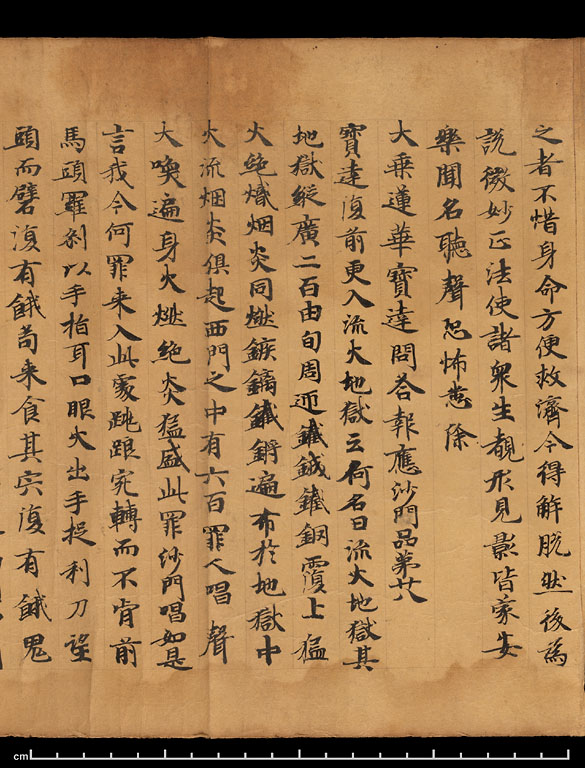 之者不惜身命方便救濟令得解脫然後為
說微妙正法使諸衆生覩形見影皆蒙安
樂聞名聽聲恐怖悉除
大乘蓮華寶達問荅報應沙門品第廿八
寶達復前更入流火地獄云何名曰流火地獄其
地獄縱廣二百由旬周迊鐵鉞鐵網覆上猛
火絶熾烟炎同燃鏃鏑鐵鏘遍布於地獄中
火流烟炎俱起西門之中有六百罪人唱聲
大喚遍身火燃絶炎猛盛此罪沙門唱如是
言我今何罪来入此處跳踉宛轉而不肯前
馬頭羅剎以手指耳口眼火出手捉利刀望
頭而劈復有餓苟来食其宍復有餓鬼